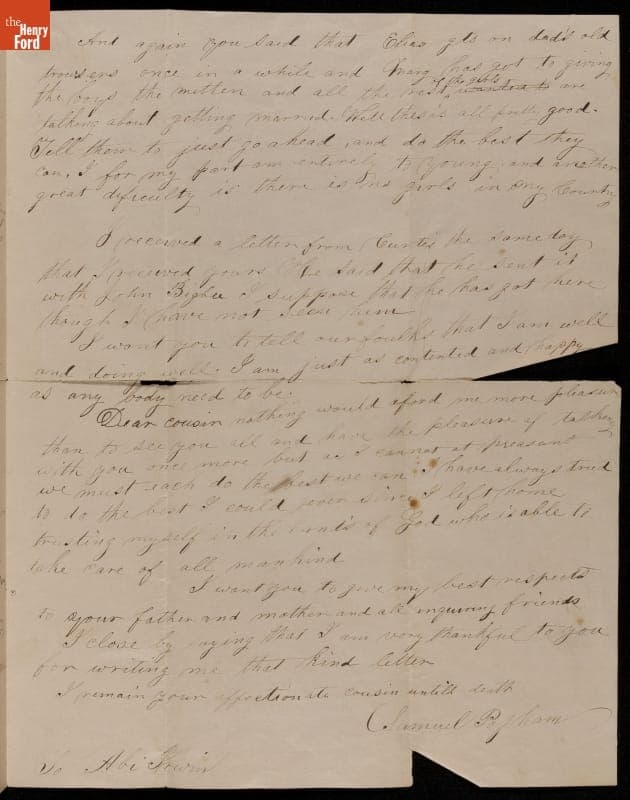 the
Henry
Ford
And again you said that Elias gets on dad's old
trousers once in a while and Mary has got to giving
the boys the mitten and all the rest of the girls wanted to are
talking about getting married. Well this is all pretty good.
Tell them to just go ahead, and do the best they
can, I for my part am entirely to young and another
great dificulty is there is no girls in my Country
I received a letter from Curtis the same day
that I received yours He said that he sent it
with John I suppose that he has got here
though I have not seen him
I want you to tell our foulks that I am well
and doing well. I am just as contented and happy
as any body need to be.
Dear cousin nothing would aford me more pleasure
than to see you all and have the pleasure of talking
with you once more but as I cannot at preasant
we must each do the best we can I have always tried
to do the best I could ever since I left home
trusting myself in the hands of God who is able to
take care of all mankind
I want you to give my best respects
to your father and mother and all inquiring friends
I close by saying that I am very thankful to you
for writing me that kind letter
I remain your affectionate cousin untill death
Samuel
To Abi Irwin